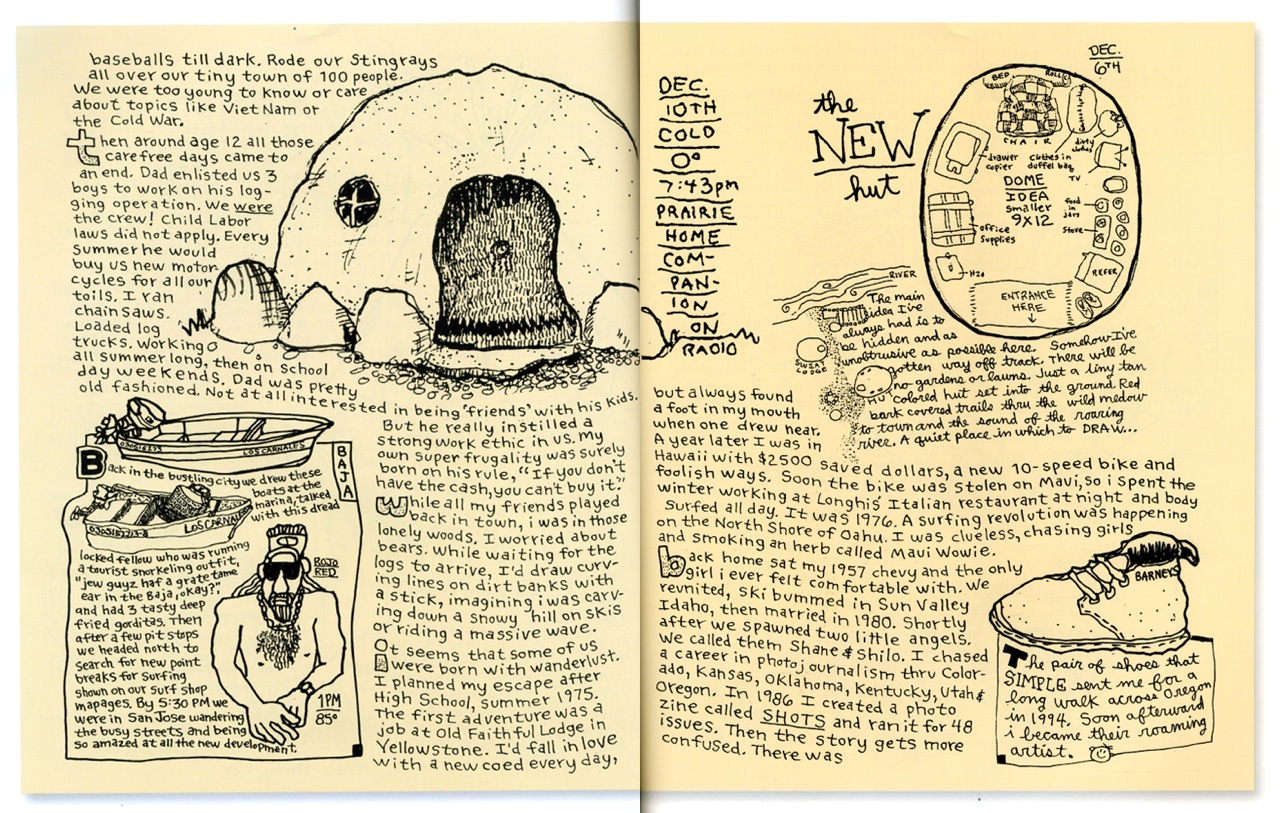 baseballs till dark. Rode our Stingrays
all over our tiny town of 100 people.
We were too young to know or care
about topics like Viet Nam or
the Cold War.
then around age 12 all those
carefree days came to
an end. Dad enlisted us 3
boys to work on his log-
ging operation. We were
the crew! Child Labor
laws did not apply. Every
summer he would
buy us new motor
cycles for all our
toils. I ran
chain saws.
Loaded log
trucks. Working
all summer long, then on school
day weekends. Dad was pretty
old fashioned. Not at all interested in being 'friends' with his kids.
But he really instilled a
strong work ethic in us. My
own super frugality was surely
born on his rule, "If you don't
have the cash, you can't buy it."
While all my friends played
back in town, i was in those
lonely woods. I worried about
bears. While waiting for the
logs to arrive, I'd draw curv-
ing lines on dirt banks with
a stick, imagining i was carv-
ing down a snowy hill on skis
or riding a massive wave.
It seems that some of us
were born with wanderlust.
I planned my escape after
High School, summer 1975.
The first adventure was a
job at Old Faithful Lodge in
Yellowstone. I'd fall in love
with a new coed every day,
LOS CARNALES
BAJA
Back in the bustling city we drew these
boats at the
marina, talked
with this dread
LOS CARNAL
locked fellow who was running
a tourist snorkeling outfit,
"jew guyz haf a grate tame
ear in the Baja, okay?",
and had 3 tasty deep
fried gorditas. Then
after a few pit stops
we headed north to
search for new point
breaks for surfing
shown on our surf shop
mapages. By 5:30 PM we
were in San Jose wandering
the busy streets and being
so amazed at all the new development.
ROJO
RED
1PM
85°
DEC.
10TH
COLD
0°
7:43pm
PRAIRIE
HOME
COM-
PAN-
ION
ON
RADIO
the
NEW
hut
DEC.
6TH
BED
ROLL
CHAIR
dirty
clothes
drawer
copier
clothes in
duffel bag
TV
DOME
IDEA
smaller
9X12
food
in
jars
Stove
office
supplies
H2O
REFER
ENTRANCE
HERE
RIVER
SWEAT
LODGE
HUT
The main
idea I've
always had is to
be hidden and as
unobtrusive as possible here. Somehow I've
gotten way off track. There will be
no gardens or lawns. Just a tiny tan
colored hut set into the ground. Red
bark covered trails thru the wild medow
to town and the sound of the roaring
river. A quiet place in which to DRAW...
but always found
a foot in my mouth
when one drew near.
A year later I was in
Hawaii with $2500 saved dollars, a new 10-speed bike and
foolish ways. Soon the bike was stolen on Maui, so i spent the
winter working at Longhis' Italian restaurant at night and body
surfed all day. It was 1976. A surfing revolution was happening
on the North Shore of Oahu. I was clueless, chasing girls
and smoking an herb called Maui Wowie.
back home sat my 1957 chevy and the only
girl i ever felt comfortable with. We
reunited, ski bummed in Sun Valley
Idaho, then married in 1980. Shortly
after we spawned two little angels.
We called them Shane & Shilo. I chased
a career in photojournalism thru Color-
ado, Kansas, Oklahoma, Kentucky, Utah &
Oregon. In 1986 I created a photo
zine called SHOTS and ran it for 48
issues. Then the story gets more
confused. There was
BARNEYS
The pair of shoes that
SIMPLE sent me for a
long walk across Oregon
in 1994. Soon afterward
i became their roaming
artist.